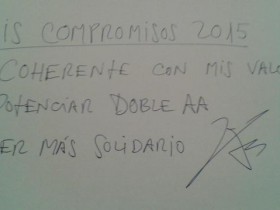 IS COMPROMISOS 2015
COHERENTE CON MIS VALO
POTENCIAR DOBLE AA
ER MÁS SOLIDARIO